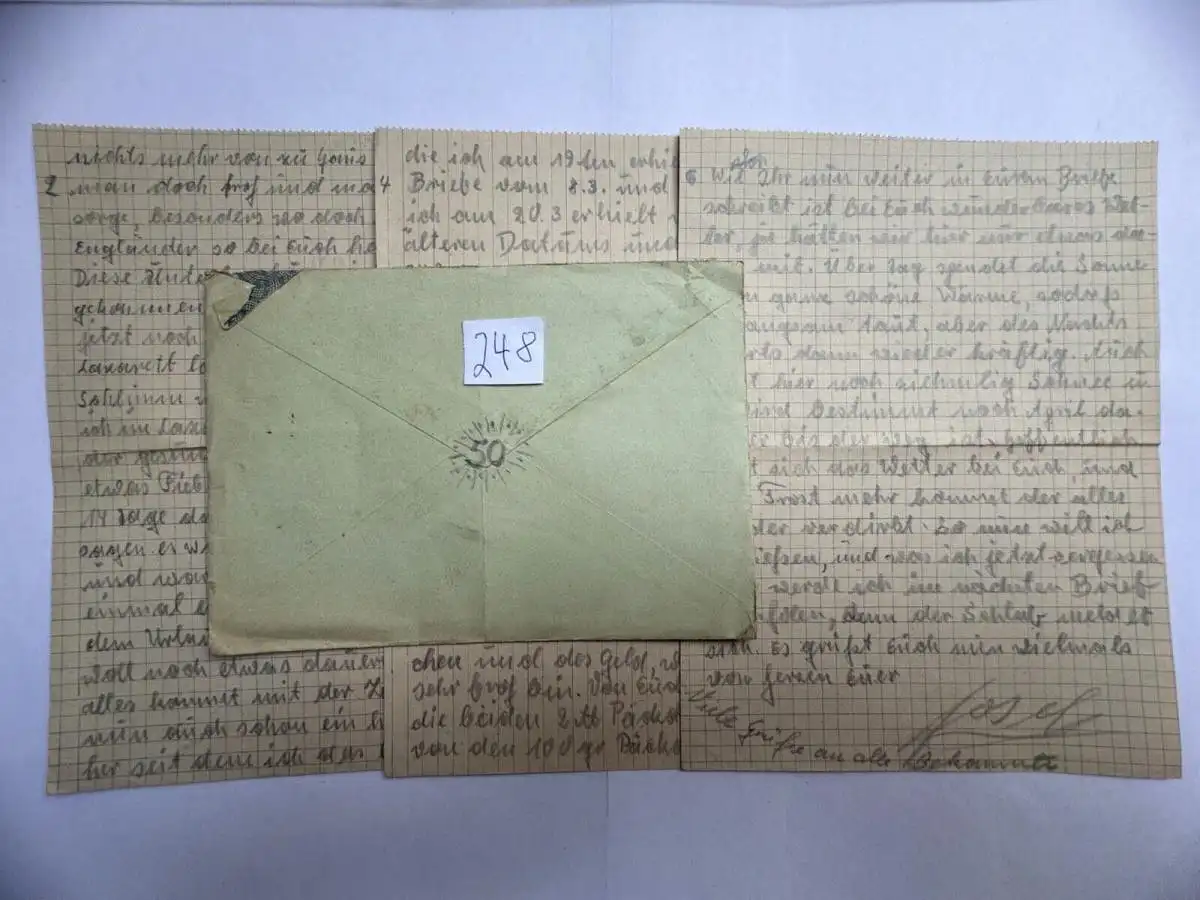 nichts mehr von zu Haus
2 man doch froh und
sorge, besonders wo doch
Engländer so bei Euch
Diese
gekommen
jetzt noch
Lazarett
Schlimm
ich im
der
etwas Fieb
14 Tage
sagen er
und
einmal
dem Urlau
woll noch etwas dauer
alles kommt mit der
nun auch schon ein
her seit dem ich das
4 die ich am 19ten erhi
Briefe vom 8.3. und
ich am 20.3 erhielt
älteren Datums und
chen und das Geld,
sehr froh bin. Von Eu
die beiden 2 tb Päck
von den 100 gr Päck
6 Wie Ihr nun weiter in Eurem Briefe
schreibt ist bei Euch wunderbares Wet-
ter, ja hätten wir hier nur etwas da-
mit. Über Tag spendet die Sonne
ganz schöne Wärme, sodass
angsam taut, aber des Nachts
dann wieder kräftig. Auch
hier noch ziehmlig Schnee u
ind bestimmt noch April da-
er bis der weg ist, hoffentlich
t sich das Wetter bei Euch, und
Frost mehr kommt der alles
der verdirbt. So nun will ich
ießen, und was ich jetzt vergessen
werde ich im nächsten Brief
holen, denn der Schlaf meldet
sich. Es grüßt Euch nun vielmals
von Herzen Euer
Josef
Viele Grüße an alle Bekannte
248
50